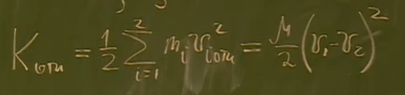 K_{отн} = \frac{1}{2} \sum_{i=1}^{2} m_i v_{i отн}^2 = \frac{μ}{2} (v_1 - v_2)^2